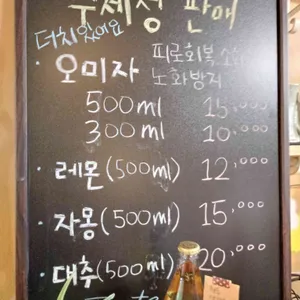 수제청 판매
더치있어요
· 오미자 피로회복
노화방지
500ml 15,000
300ml 10,000
· 레몬(500ml) 12,000
· 자몽(500ml) 15,000
· 대추(500ml) 20,000